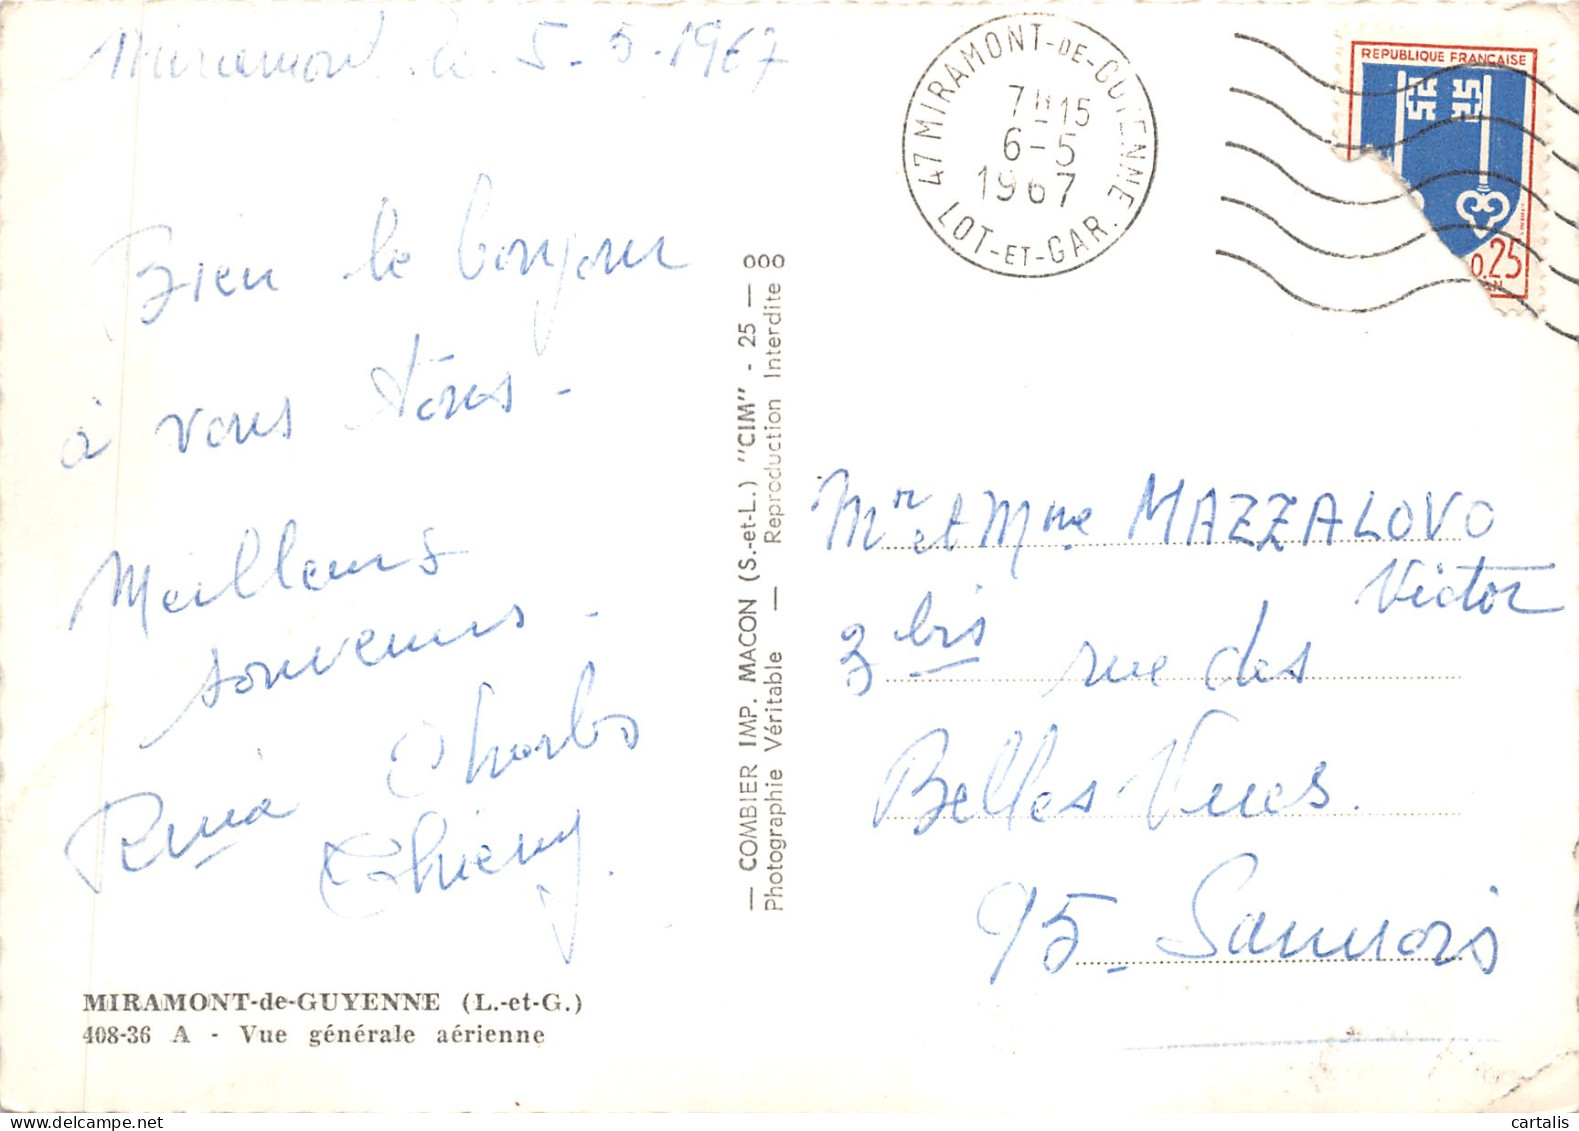 Miramont le 5-5-1967
Bien le bonjour
à vous tous -
Meilleurs
souvenirs -
Charles
Thierry
MIRAMONT-de-GUYENNE (L.-et-G.)
408-36 A - Vue générale aérienne
— COMBIER IMP. MACON (S.-et-L.) "CIM" - 25 — 8
Photographie Véritable — Reproduction Interdite 8
47 MIRAMONT-DE-GUYENNE
7H15
6-5
1967
LOT-ET-GAR.
REPUBLIQUE FRANÇAISE
0,25
Mr et Mme MAZZALOVO
Victor
3 bis rue des
Belles Vues.
95 - Sannois
cartalis
www.delcampe.net